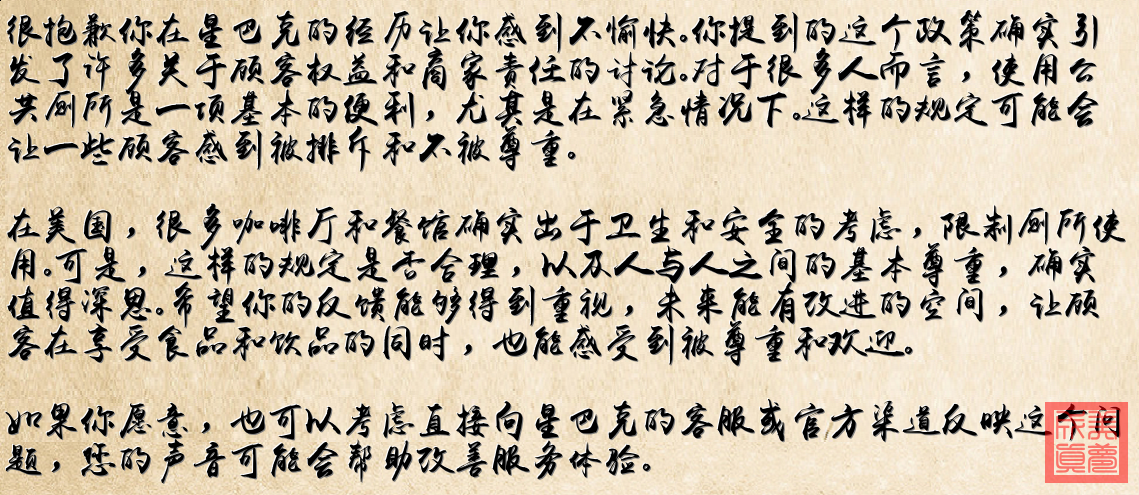 很抱歉你在星巴克的经历让你感到不愉快。你提到的这个政策确实引
发了许多关于顾客权益和商家责任的讨论。对于很多人而言，使用公
共厕所是一项基本的便利，尤其是在紧急情况下。这样的规定可能会
让一些顾客感到被排斥和不被尊重。
在美国，很多咖啡厅和餐馆确实出于卫生和安全的考虑，限制厕所使
用。可是，这样的规定是否合理，以及人与人之间的基本尊重，确实
值得深思。希望你的反馈能够得到重视，未来能有改进的空间，让顾
客在享受食品和饮品的同时，也能感受到被尊重和欢迎。
如果你愿意，也可以考虑直接向星巴克的客服或官方渠道反映这个问
题，您的声音可能会帮助改善服务体验。